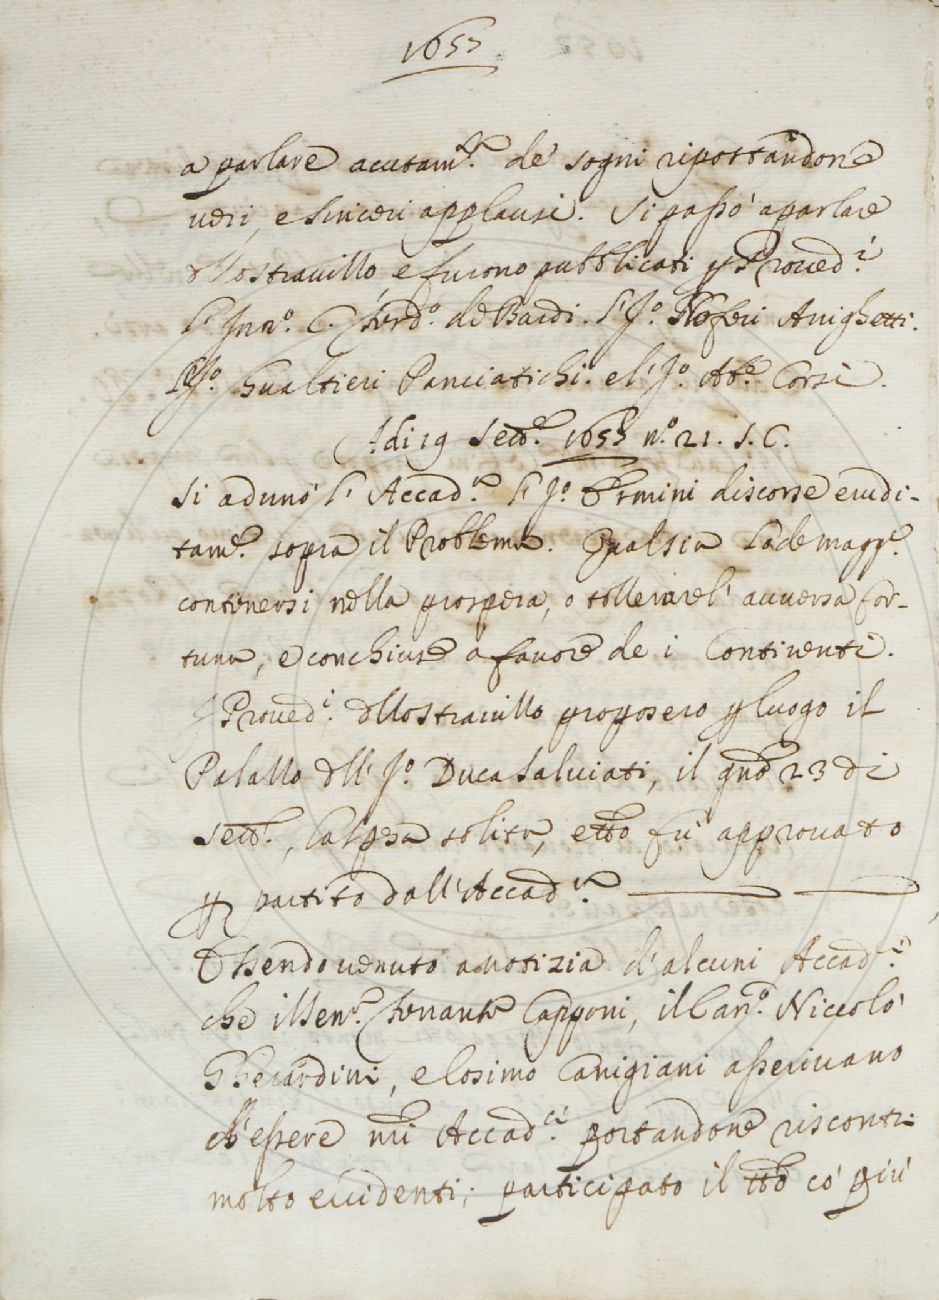 1653
a parlare acutam.te de' sogni riportandone
veri, e sinceri applausi. Si passò a parlare
dllo stravizzo, e furono pubblicati p Proved.i
l'Inno. C. Ferd.o de Bardi. l'Jo. Noferi Arrighetti.
l'Jo. Gualtieri Panciatichi. e l'Jo. Ab.e Corsi.
Adi 19 Sett.e 1653 n.o 21. S. C.
Si adunò l'Accad.a l'Jo. Ermini discorse erudi-
tam.e sopra il Problema. Qual sia lode magg.e
contenersi nella prospera, o tollerare l'avversa for-
tuna, e conchiuse a favore de i Continenti.
I Proved.i dllo stravizzo proposero p luogo il
Palazzo dll' Jo. Duca Salviati, il gno 23 di
Sett.e, la spesa solita, e tto fù approvato
p partito dall'Accad.a
Essendo venuto a notizia d'alcuni Accad.ci
che il Sen.e Ferrante Capponi, il Can.o Niccolò
Gherardini, e Cosimo Canigiani asserivano
d'essere nri Accad.ci portandone riscontri
molto evidenti; participato il tto cò più